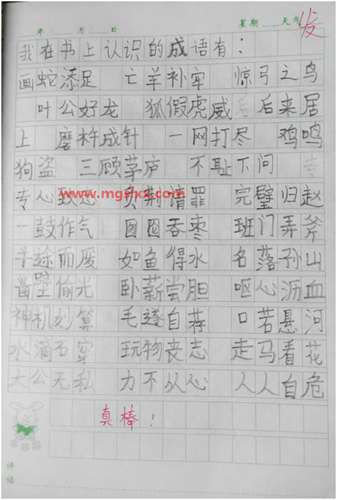 年 月 日 星期 天气
我在书上认识的成语有：
画蛇添足 亡羊补牢 惊弓之鸟
叶公好龙 狐假虎威 后来居
上 磨杵成针 一网打尽 鸡鸣
狗盗 三顾茅庐 不耻下问
专心致志 负荆请罪 完璧归赵
www.mgshxx.com
一鼓作气 囫囵吞枣 班门弄斧
半途而废 如鱼得水 名落孙山
凿壁偷光 卧薪尝胆 呕心沥血
神机妙算 毛遂自荐 口若悬河
水滴石穿 玩物丧志 走马看花
大公无私 力不从心 人人自危
真棒！
评语